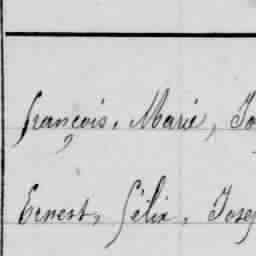 François, Marie, Jo
Ernest, Félix, Josep